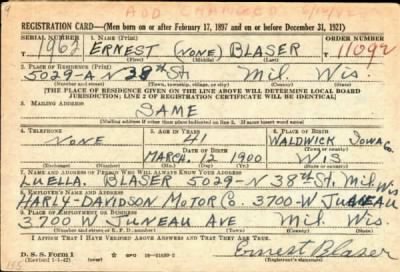 ADD CHANGED
REGISTRATION CARD—(Men born on or after February 17, 1897 and on or before December 31, 1921)
SERIAL NUMBER 1. NAME (Print) ORDER NUMBER
1962 ERNEST (NONE) BLASER 11092
(First) (Middle) (Last)
2. PLACE OF RESIDENCE (Print)
5029-A N 38th St. Mil. Wis.
(Number and street) (Town, township, village, or city) (County) (State)
[THE PLACE OF RESIDENCE GIVEN ON THE LINE ABOVE WILL DETERMINE LOCAL BOARD
JURISDICTION; LINE 2 OF REGISTRATION CERTIFICATE WILL BE IDENTICAL]
3. MAILING ADDRESS
SAME
[Mailing address if other than place indicated on line 2. If same insert word same]
4. TELEPHONE 5. AGE IN YEARS 6. PLACE OF BIRTH
NONE 41 WALDWICK IOWA Co
DATE OF BIRTH (Town or county)
MARCH. 12 1900 WIS
(Exchange) (Number) (Mo.) (Day) (Yr.) (State or country)
7. NAME AND ADDRESS OF PERSON WHO WILL ALWAYS KNOW YOUR ADDRESS
LUELLA BLASER 5029-N 38th St. Mil Wis
8. EMPLOYER'S NAME AND ADDRESS
HARLY-DAVIDSON MOTOR Co. 3700-W JUNEAU
9. PLACE OF EMPLOYMENT OR BUSINESS
3700 W JUNEAU AVE Mil. Wis.
(Number and street or R. F. D. number) (Town) (County) (State)
I AFFIRM THAT I HAVE VERIFIED ABOVE ANSWERS AND THAT THEY ARE TRUE.
Ernest Blaser
D. S. S. Form 1
(Revised 1-1-42) (over) GPO 16-21630-2